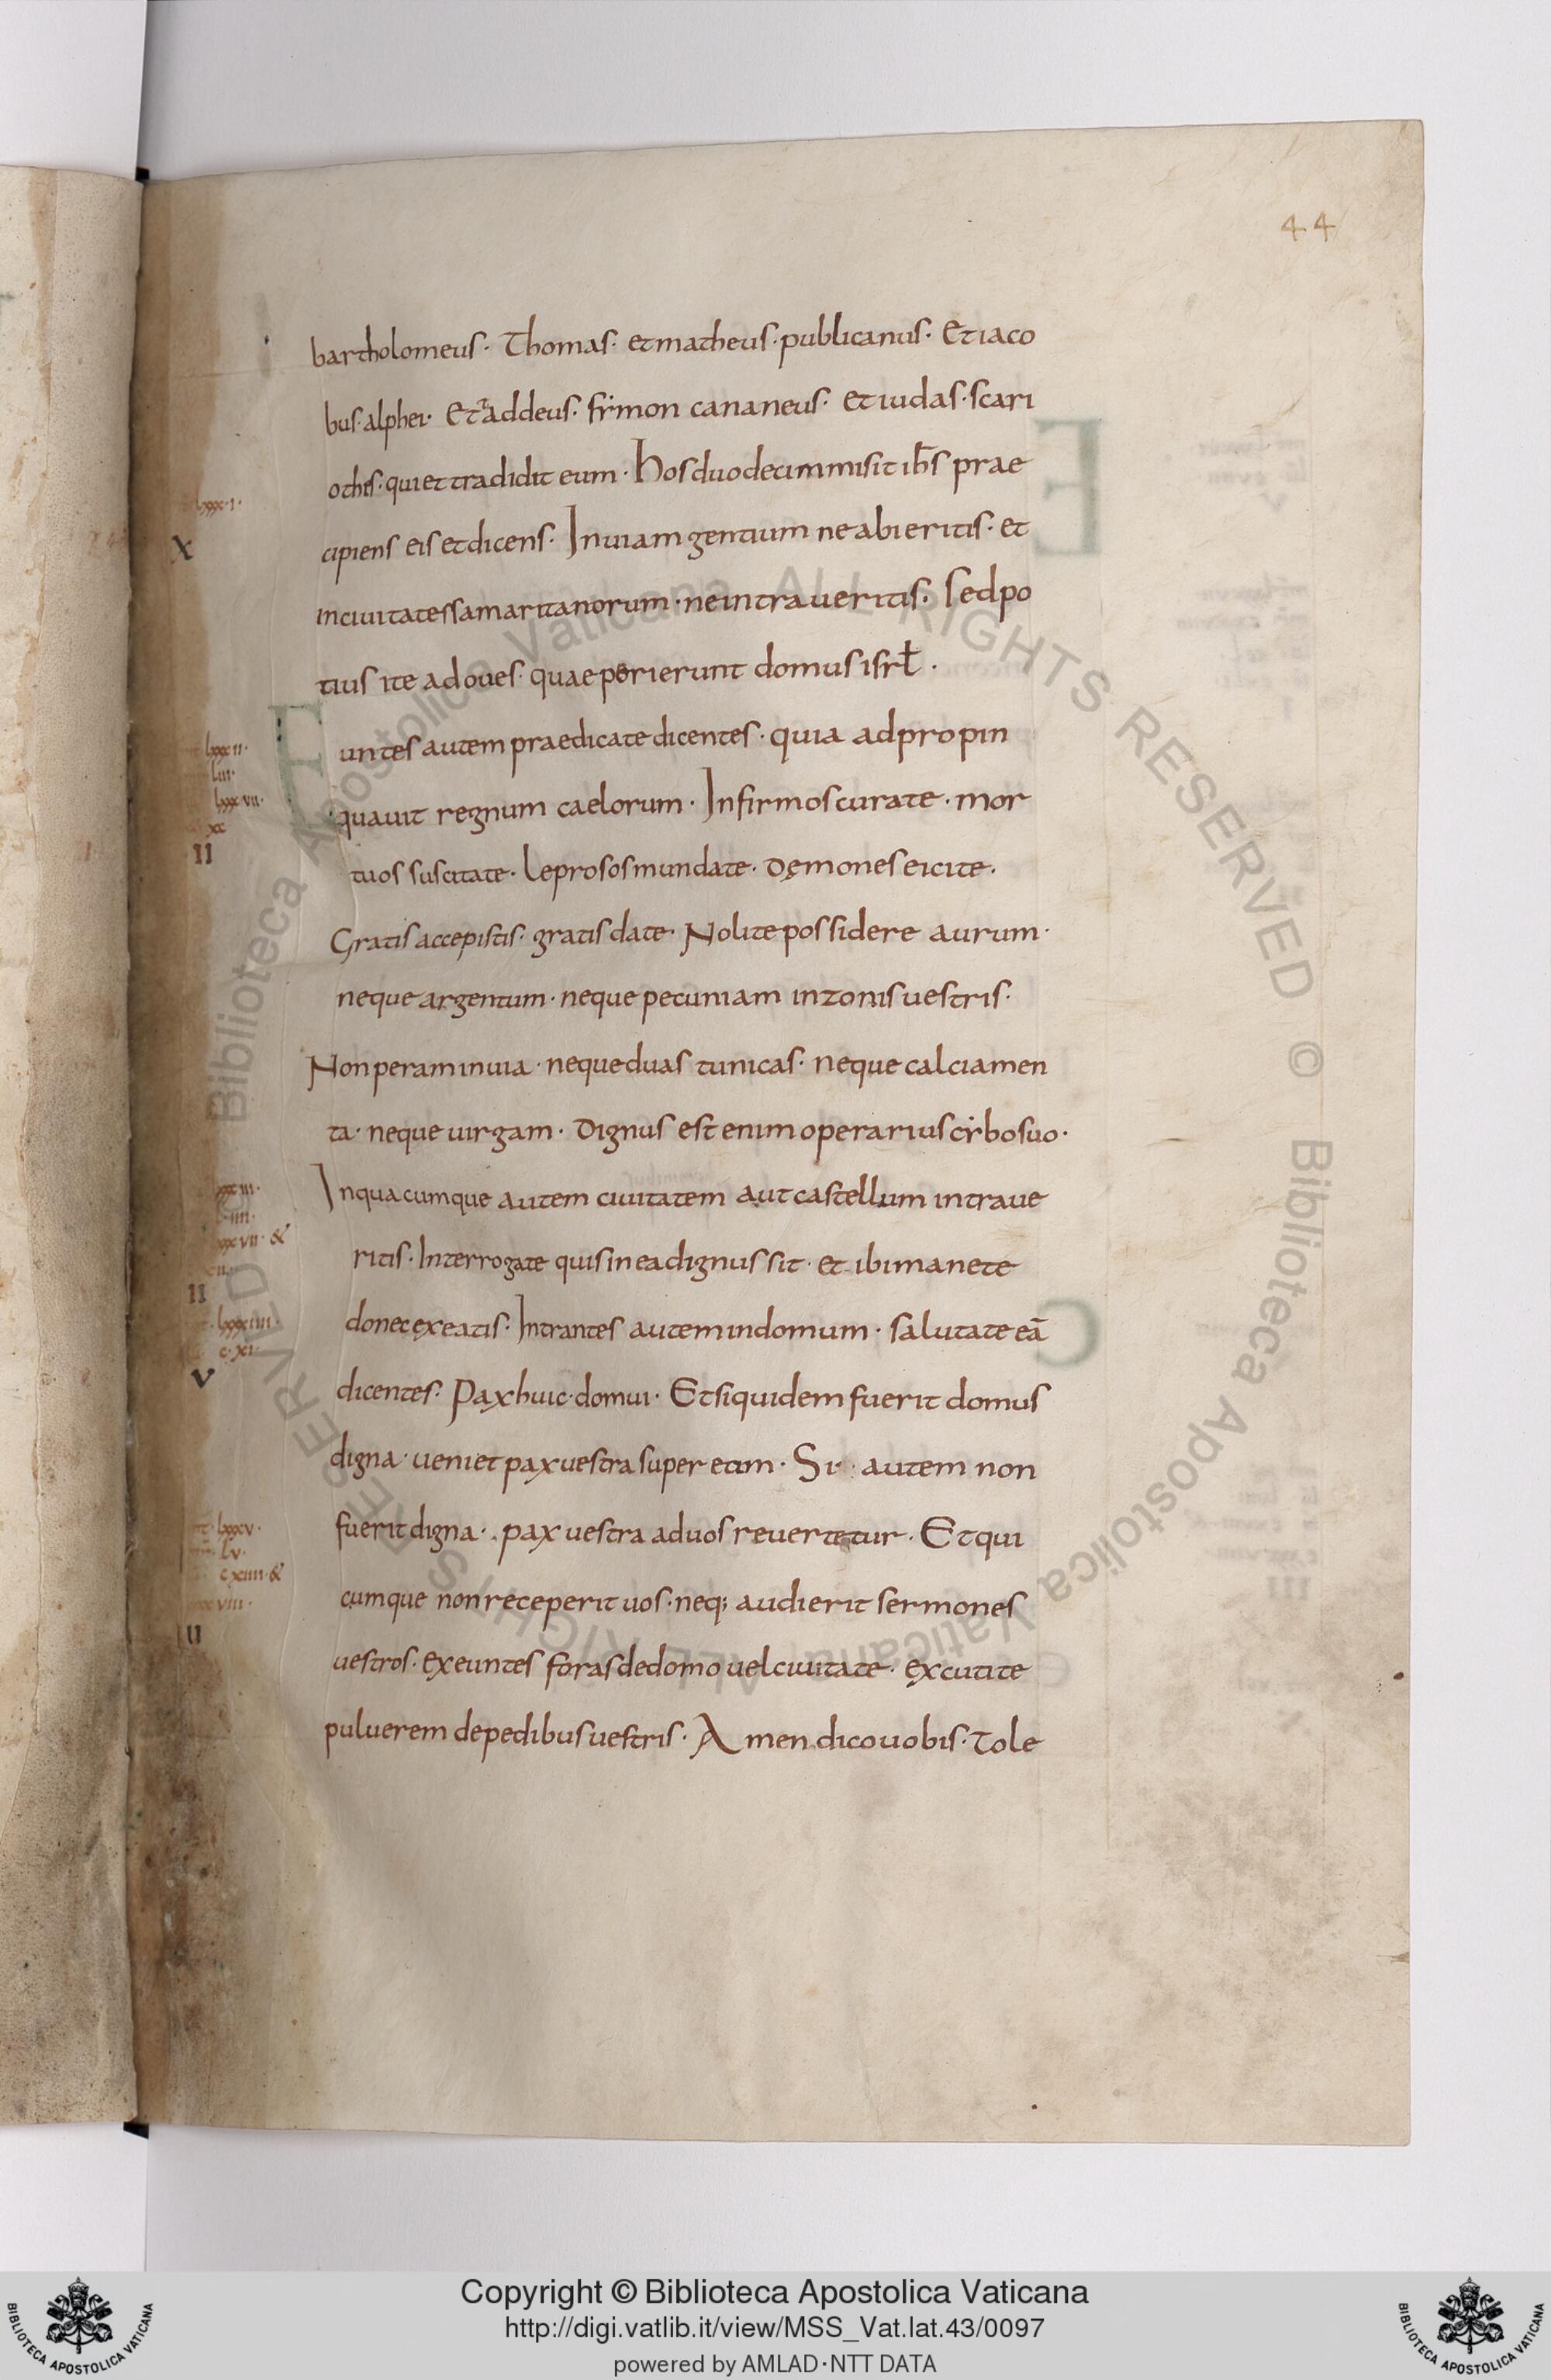 44
bartholomeus· Thomas· et matheus·publicanus· Et iaco
bus·alphei· Et taddeus· simon cananeus· et iudas·scari
othes·qui et tradidit eum· hos duodecim misit ih̄s prae
cipiens eis et dicens· In uiam gentium ne abieritis· et
in ciuitates samaritanorum·ne intraueritis· sed po
tius ite ad oues· quae perierunt domus isrł·
Euntes autem praedicate dicentes· quia adpropin
quauit regnum caelorum· Infirmos curate·mor
tuos suscitate· leprosos mundate· dęmones eicite·
Gratis accepistis· gratis date· Nolite possidere aurum·
neque argentum· neque pecuniam in zonis uestris·
Non peram in uia· neque duas tunicas· neque calciamen
ta· neque uirgam· dignus est enim operarius cibo suo·
In quacumque autem ciuitatem aut castellum intraue
ritis· Interrogate quis in ea dignus sit· et ibi manete
donec exeatis· Intrantes autem in domum· salutate eā
dicentes· Pax huic·domui· Et siquidem fuerit domus
digna· ueniet pax uestra super eam· Si· autem non
fuerit digna· pax uestra ad uos reuertetur· Et qui
cumque non receperit uos·neq; audierit sermones
uestros· exeuntes foras de domo uel ciuitate· excutite
puluerem de pedibus uestris· Amen dico uobis·Tole
lxxx·i·
X
lxxxii·
liii·
lxxxvii·
II
II
lxxxiiii·
c·xi·
V
lxxxv·
lv·
cxiiii·&
II
Biblioteca Apostolica Vaticana ALL RIGHTS RESERVED ©
Biblioteca Apostolica Vaticana ALL RIGHTS RESERVED
Copyright © Biblioteca Apostolica Vaticana
http://digi.vatlib.it/view/MSS_Vat.lat.43/0097
powered by AMLAD·NTT DATA
BIBLIOTECA APOSTOLICA VATICANA
BIBLIOTECA APOSTOLICA VATICANA